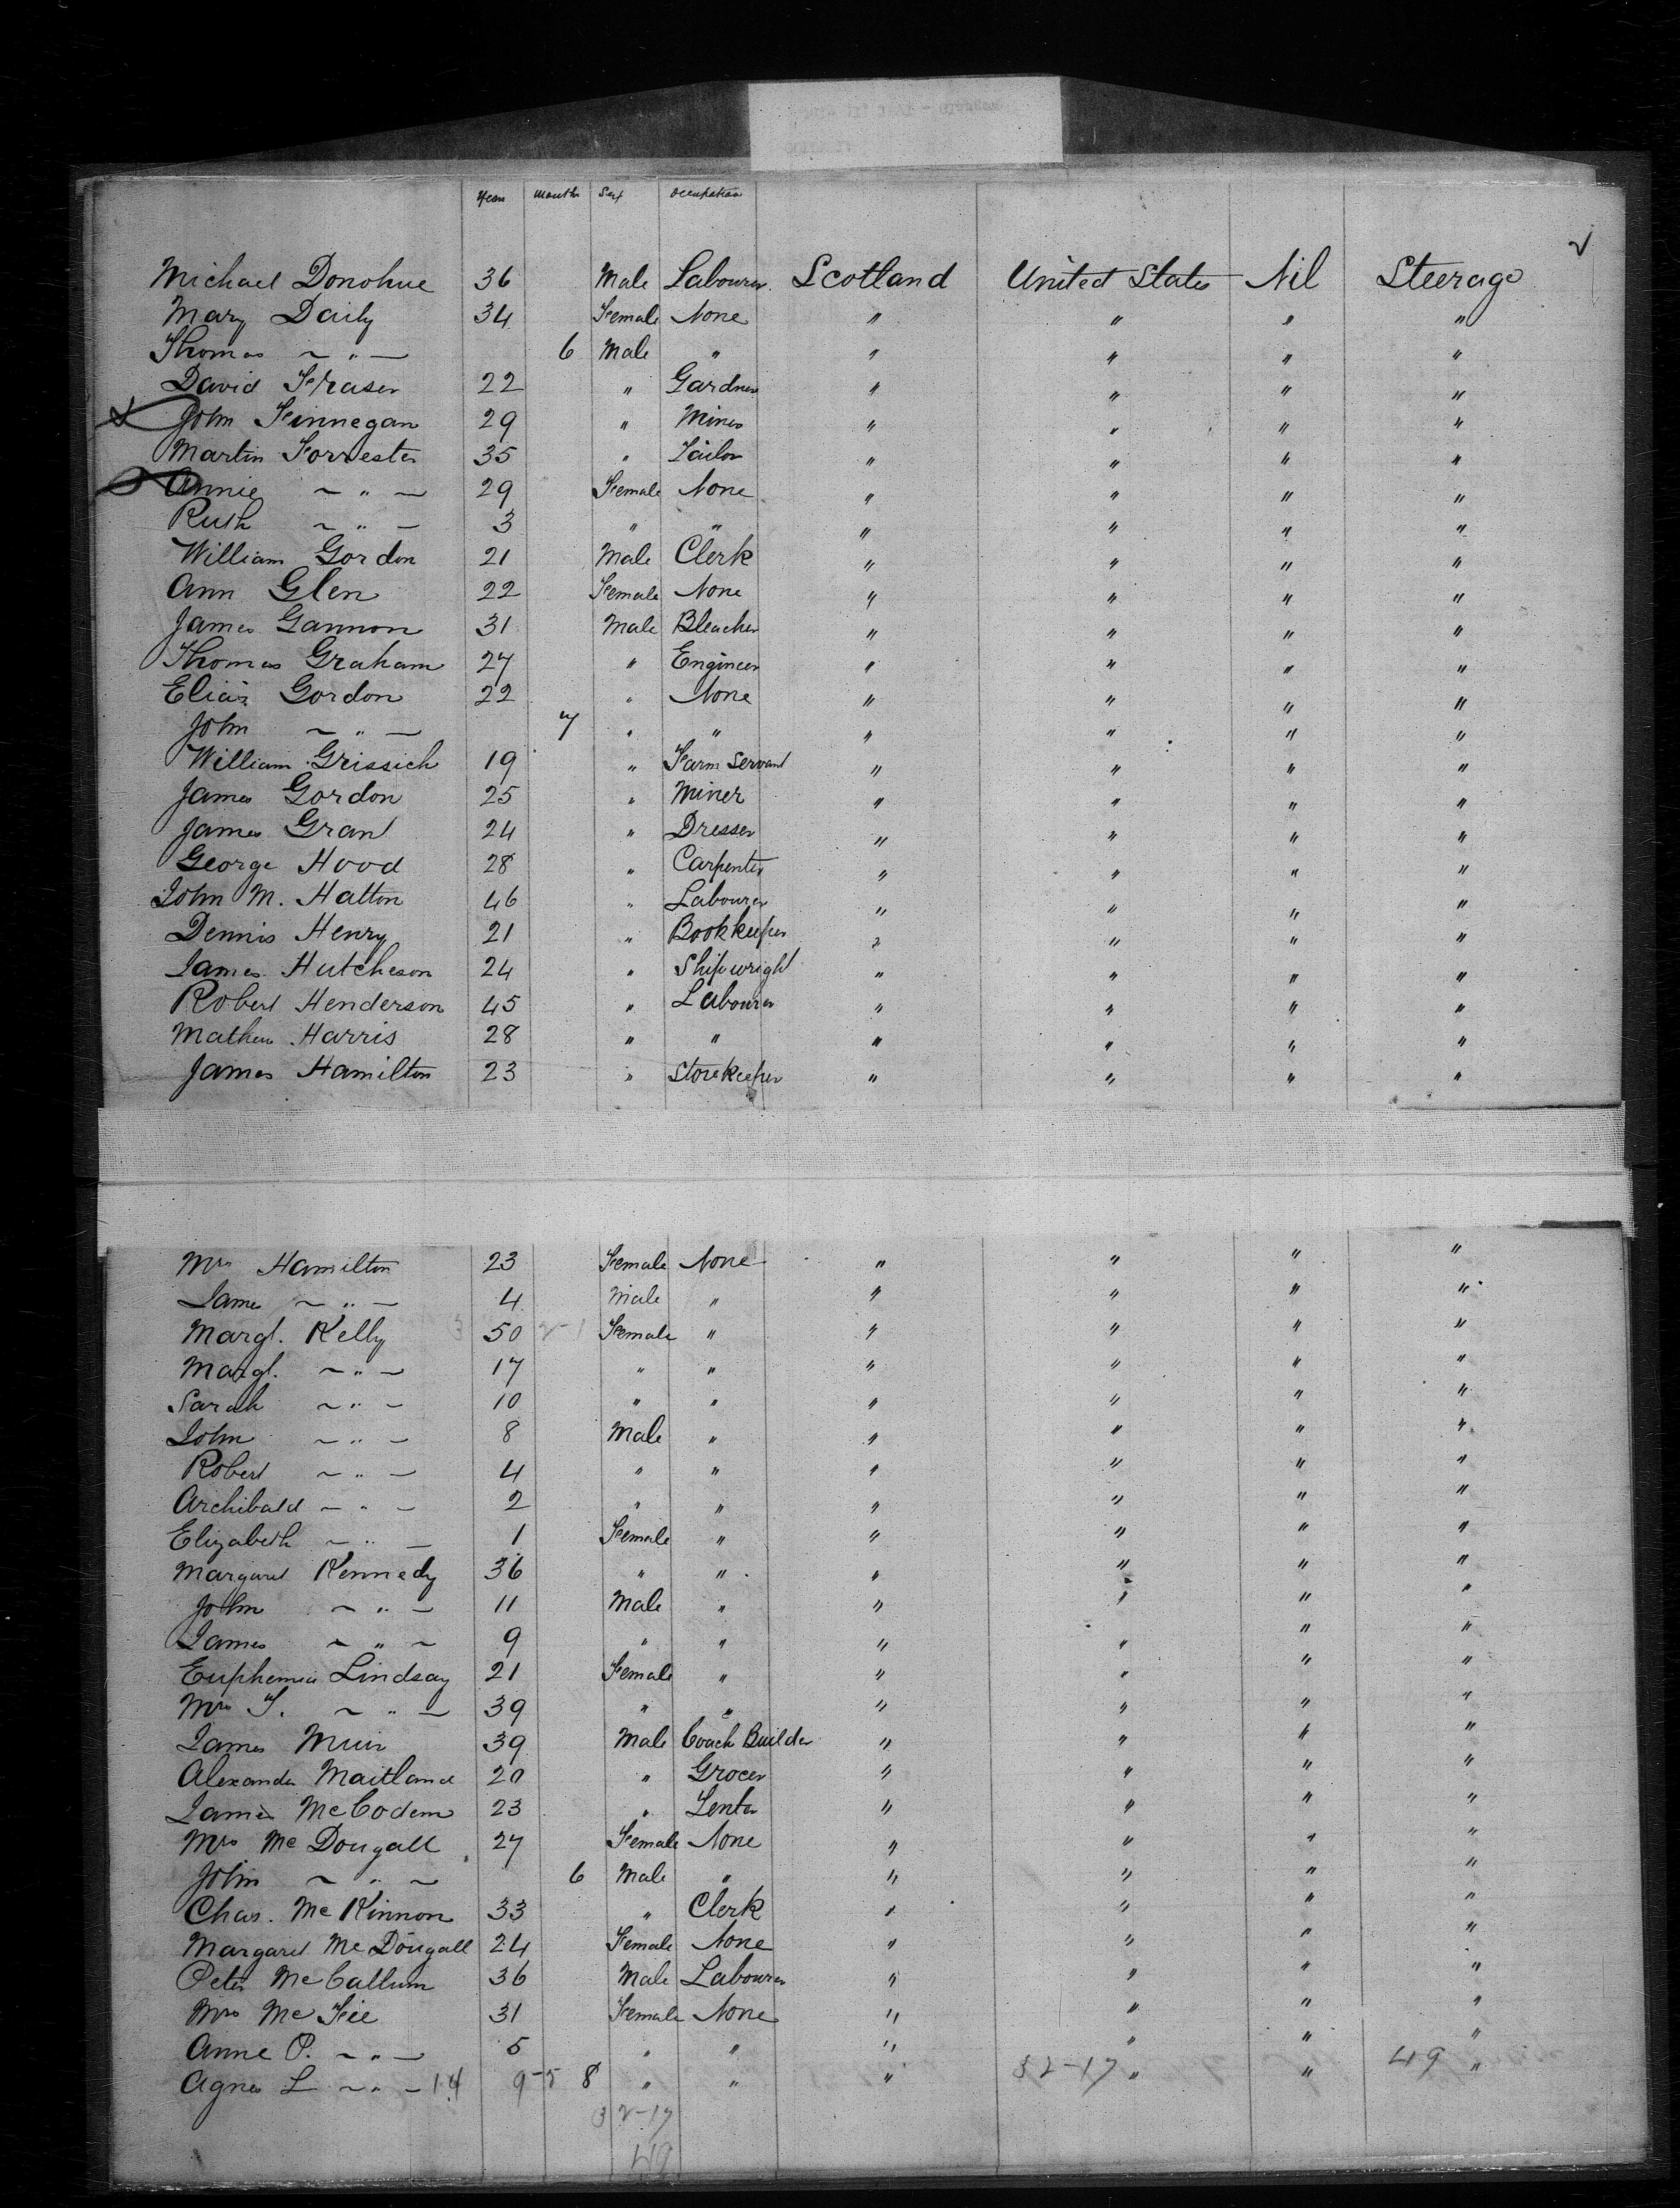 Years Months Sex Occupation
Michael Donohue 36 Male Labourer Scotland United States Nil Steerage
Mary Daily 34 Female None " " " "
Thomas ~ " — 6 Male " " " " "
David Fraser 22 " Gardner " " " "
John Finnegan 29 " Miner " " " "
Martin Forrester 35 " Tailor " " " "
Annie ~ " — 29 Female None " " " "
Ruth ~ " — 3 " " " " " "
William Gordon 21 Male Clerk " " " "
Ann Glen 22 Female None " " " "
James Gannon 31 Male Bleacher " " " "
Thomas Graham 27 " Engineer " " " "
Elias Gordon 22 " None " " " "
John ~ " — 7 " " " " " "
William Grissich 19 " Farm Servant " " " "
James Gordon 25 " Miner " " " "
James Grant 24 " Dresser " " " "
George Hood 28 " Carpenter " " " "
John M. Hatton 46 " Labourer " " " "
Dennis Henry 21 " Bookkeeper " " " "
James Hutcheson 24 " Shipwright " " " "
Robert Henderson 45 " Labourer " " " "
Mathew Harris 28 " " " " " "
James Hamilton 23 " Storekeeper " " " "
Mrs Hamilton 23 Female None " " " "
James ~ " — 4 Male " " " " "
Margt. Kelly 50 Female " " " " "
Margt. ~ " — 17 " " " " " "
Sarah ~ " — 10 " " " " " "
John ~ " — 8 Male " " " " "
Robert ~ " — 4 " " " " " "
Archibald ~ " — 2 " " " " " "
Elizabeth ~ " — 1 Female " " " " "
Margaret Kennedy 36 " " " " " "
John ~ " — 11 Male " " " " "
James ~ " ~ 9 " " " " " "
Euphemia Lindsay 21 Female " " " " "
Mrs T. ~ " — 39 " " " " " "
James Muir 39 Male Coach Builder " " " "
Alexander Maitland 20 " Grocer " " " "
James McCodem 23 " " " " "
Mrs McDougall 27 Female None " " " "
John ~ " ~ 6 Male " " " " "
Chas. McKinnon 33 " Clerk " " " "
Margaret McDougall 24 Female None " " " "
Peter McCallum 36 Male Labourer " " " "
Mrs McFie 31 Female None " " " "
Anne P. ~ " — 5 " " " " " "
Agnes L ~ " — 14 9-5 8 " " " 32-17 " " 49 "
32-17
49